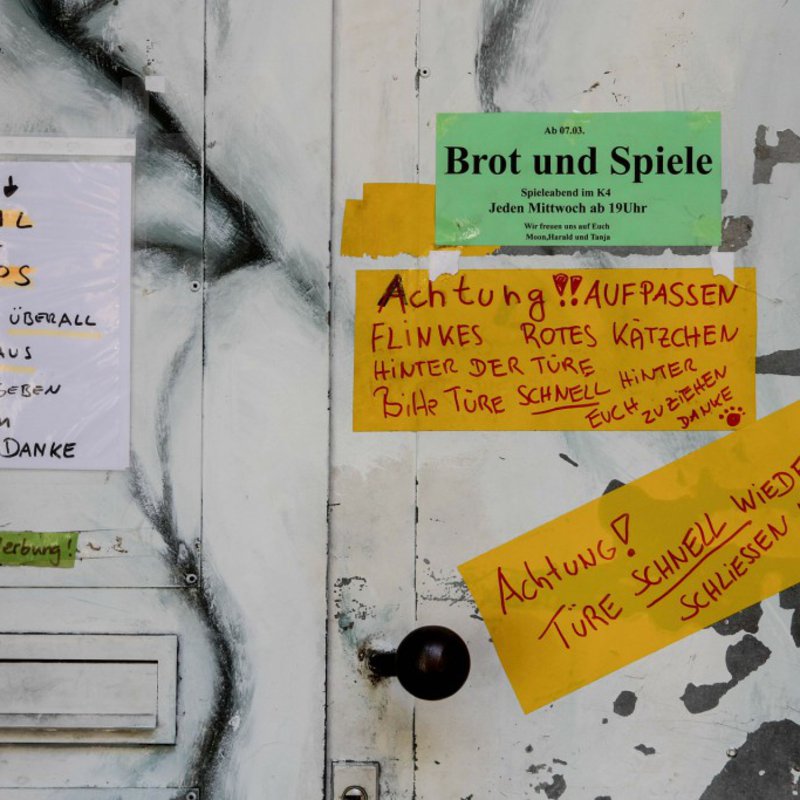 Ab 07.03.
Brot und Spiele
Spieleabend im K4
Jeden Mittwoch ab 19Uhr
Wir freuen uns auf Euch
Moon,Harald und Tanja
Achtung!! AUFPASSEN
FLINKES ROTES KÄTZCHEN
HINTER DER TÜRE
Bitte TÜRE SCHNELL HINTER
EUCH ZUZIEHEN
DANKE
Achtung!
TÜRE SCHNELL WIEDE
SCHLIESSEN
ÜBERALL
AUS
GEBEN
DANKE
erbung!